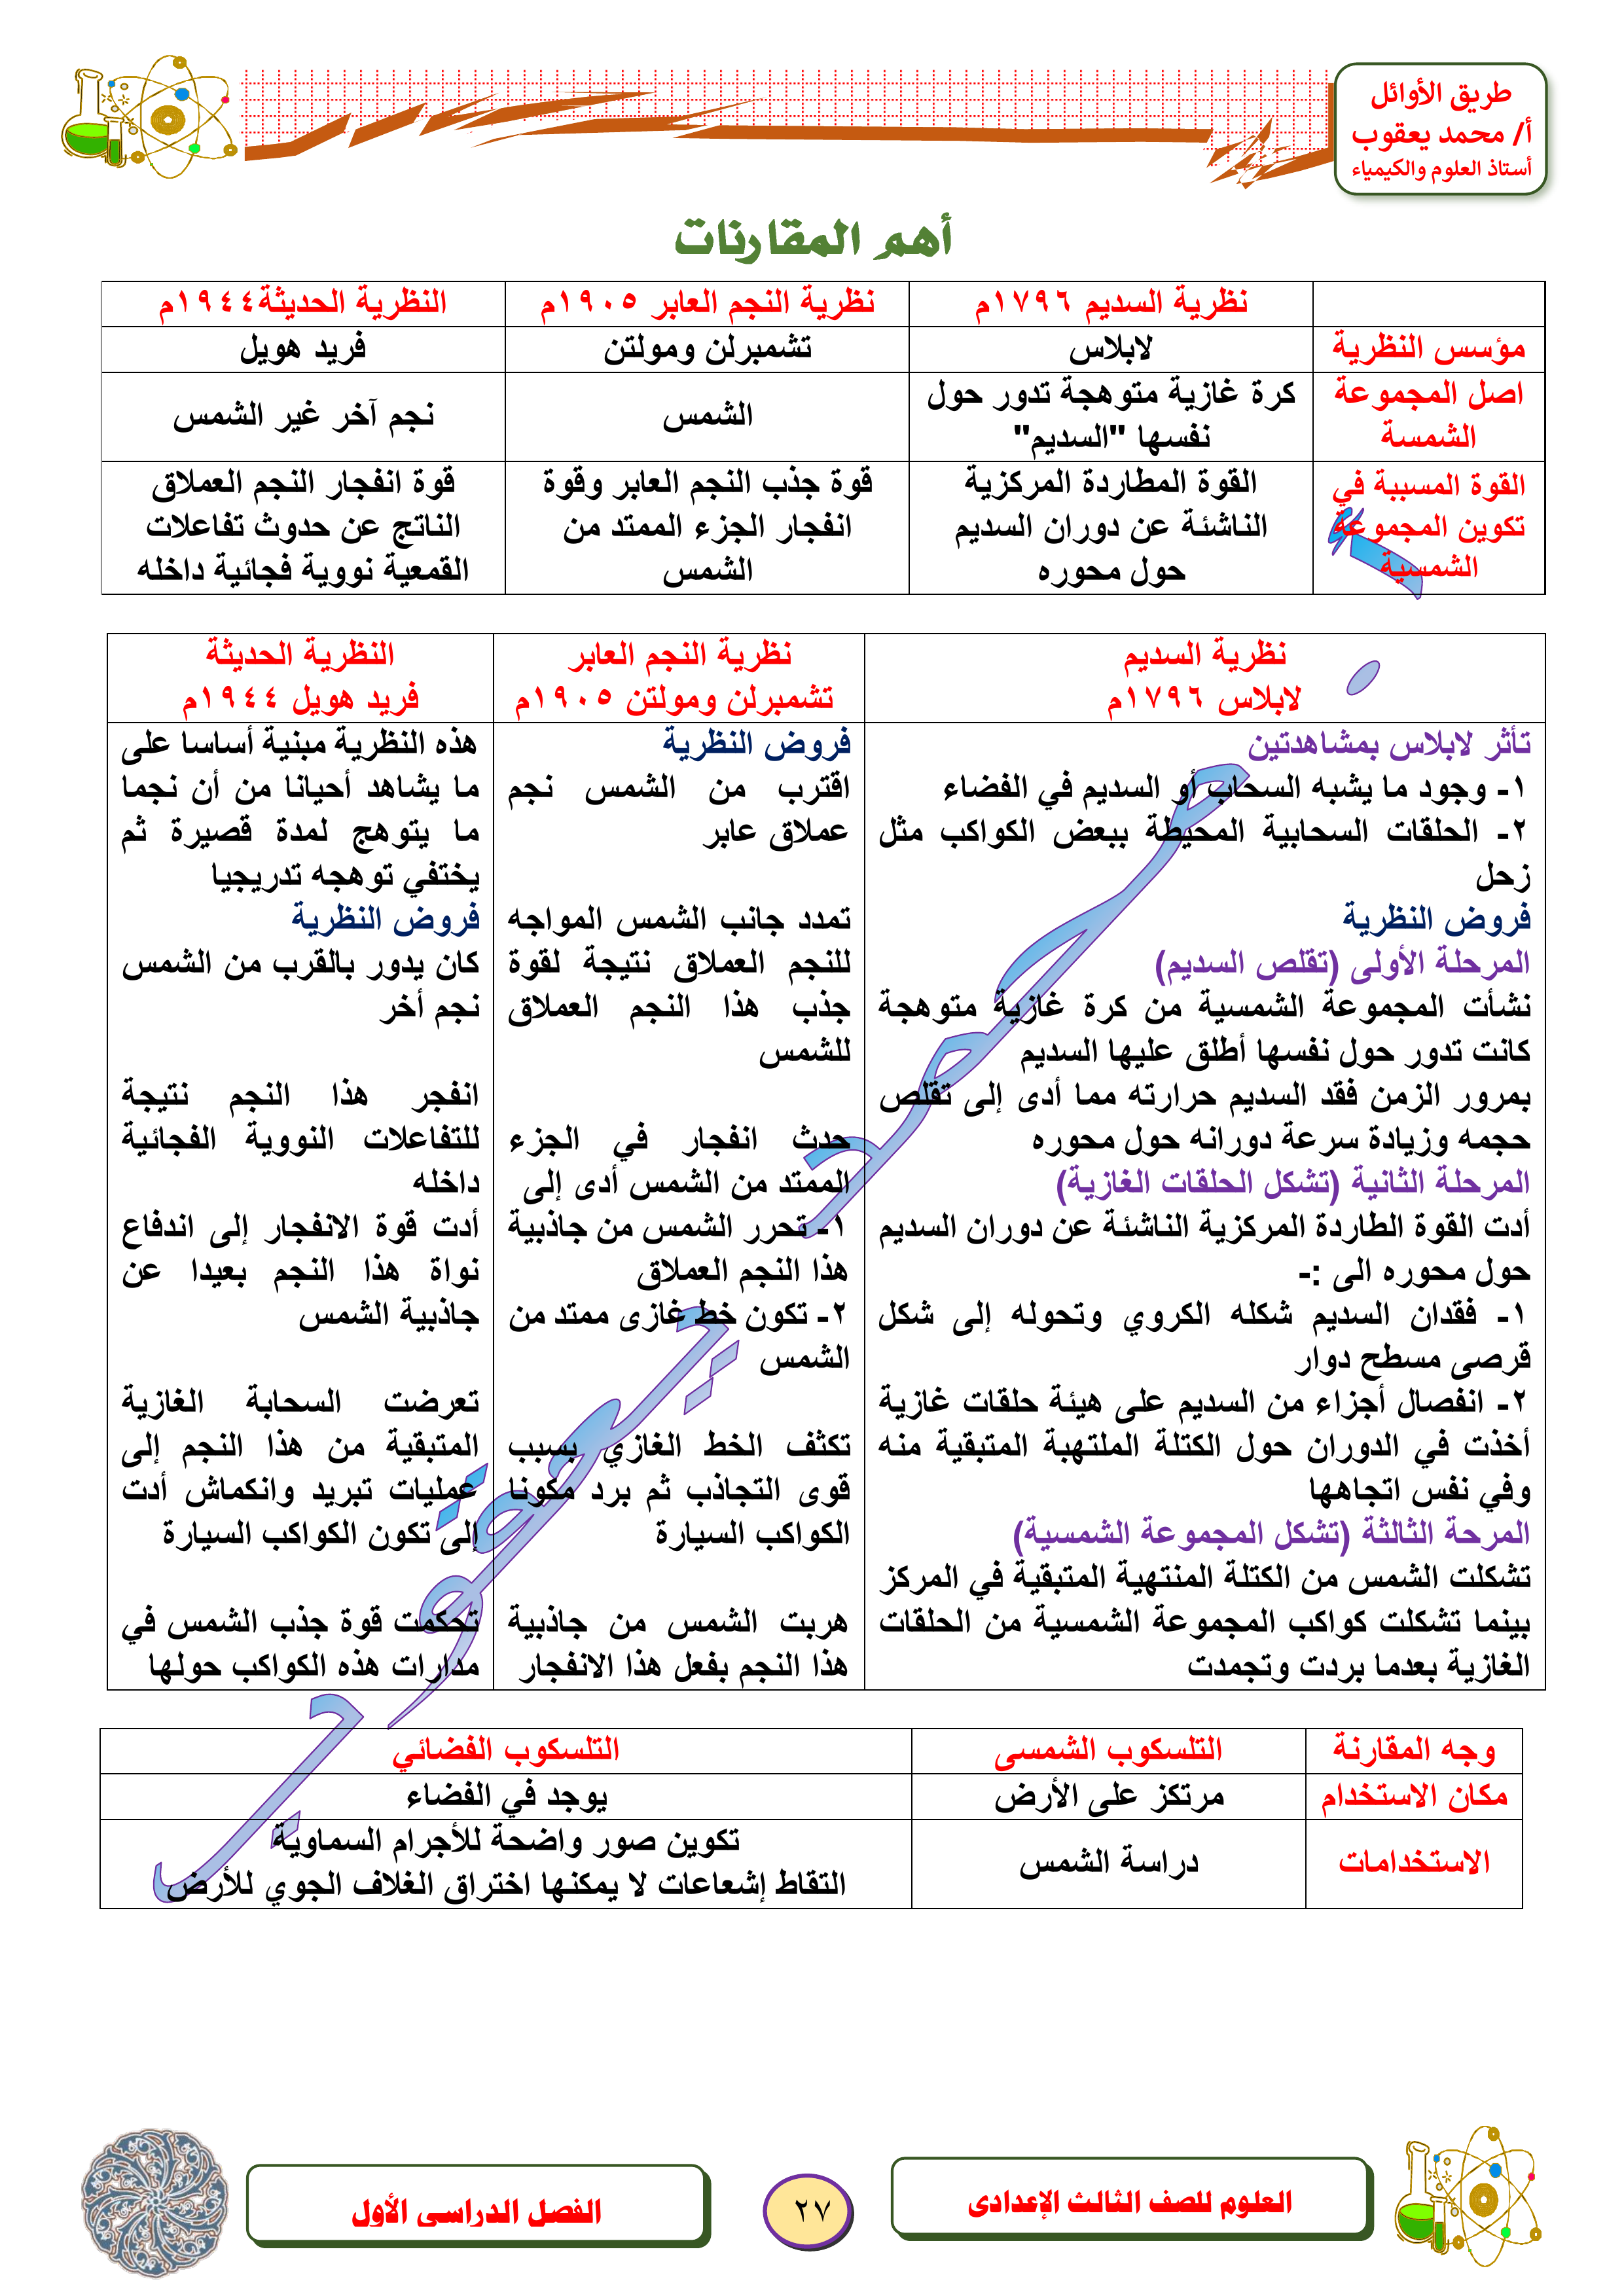 طريق الأوائل
أ/ محمد يعقوب
أستاذ العلوم والكيمياء
أهم المقارنات
نظرية السديم ١٧٩٦م
نظرية النجم العابر ١٩٠٥م
النظرية الحديثة١٩٤٤م
مؤسس النظرية
لابلاس
تشمبرلن ومولتن
فريد هويل
اصل المجموعة
الشمسة
كرة غازية متوهجة تدور حول
نفسها "السديم"
الشمس
نجم آخر غير الشمس
القوة المسببة في
تكوين المجموعة
الشمسية
القوة المطاردة المركزية
الناشئة عن دوران السديم
حول محوره
قوة جذب النجم العابر وقوة
انفجار الجزء الممتد من
الشمس
قوة انفجار النجم العملاق
الناتج عن حدوث تفاعلات
القمعية نووية فجائية داخله
نظرية السديم
لابلاس ١٧٩٦م
نظرية النجم العابر
تشمبرلن ومولتن ١٩٠٥م
النظرية الحديثة
فريد هويل ١٩٤٤م
تأثر لابلاس بمشاهدتين
١- وجود ما يشبه السحاب أو السديم في الفضاء
٢- الحلقات السحابية المحيطة ببعض الكواكب مثل
زحل
فروض النظرية
المرحلة الأولى (تقلص السديم)
نشأت المجموعة الشمسية من كرة غازية متوهجة
كانت تدور حول نفسها أطلق عليها السديم
بمرور الزمن فقد السديم حرارته مما أدى إلى تقلص
حجمه وزيادة سرعة دورانه حول محوره
المرحلة الثانية (تشكل الحلقات الغازية)
أدت القوة الطاردة المركزية الناشئة عن دوران السديم
حول محوره الى :-
١- فقدان السديم شكله الكروي وتحوله إلى شكل
قرصى مسطح دوار
٢- انفصال أجزاء من السديم على هيئة حلقات غازية
أخذت في الدوران حول الكتلة الملتهبة المتبقية منه
وفي نفس اتجاهها
المرحة الثالثة (تشكل المجموعة الشمسية)
تشكلت الشمس من الكتلة المنتهية المتبقية في المركز
بينما تشكلت كواكب المجموعة الشمسية من الحلقات
الغازية بعدما بردت وتجمدت
فروض النظرية
اقترب من الشمس نجم
عملاق عابر
تمدد جانب الشمس المواجه
للنجم العملاق نتيجة لقوة
جذب هذا النجم العملاق
للشمس
حدث انفجار في الجزء
الممتد من الشمس أدى إلى
١- تحرر الشمس من جاذبية
هذا النجم العملاق
٢- تكون خط غازى ممتد من
الشمس
تكثف الخط الغازي بسبب
قوى التجاذب ثم برد مكونا
الكواكب السيارة
هربت الشمس من جاذبية
هذا النجم بفعل هذا الانفجار
هذه النظرية مبنية أساسا على
ما يشاهد أحيانا من أن نجما
ما يتوهج لمدة قصيرة ثم
يختفي توهجه تدريجيا
فروض النظرية
كان يدور بالقرب من الشمس
نجم أخر
انفجر هذا النجم نتيجة
للتفاعلات النووية الفجائية
داخله
أدت قوة الانفجار إلى اندفاع
نواة هذا النجم بعيدا عن
جاذبية الشمس
تعرضت السحابة الغازية
المتبقية من هذا النجم إلى
عمليات تبريد وانكماش أدت
إلى تكون الكواكب السيارة
تحكمت قوة جذب الشمس في
مدارات هذه الكواكب حولها
وجه المقارنة
التلسكوب الشمسى
التلسكوب الفضائي
مكان الاستخدام
مرتكز على الأرض
يوجد في الفضاء
الاستخدامات
دراسة الشمس
تكوين صور واضحة للأجرام السماوية
التقاط إشعاعات لا يمكنها اختراق الغلاف الجوي للأرض
أ. محمد يعقوب
العلوم للصف الثالث الإعدادى
٢٧
الفصل الدراسى الأول